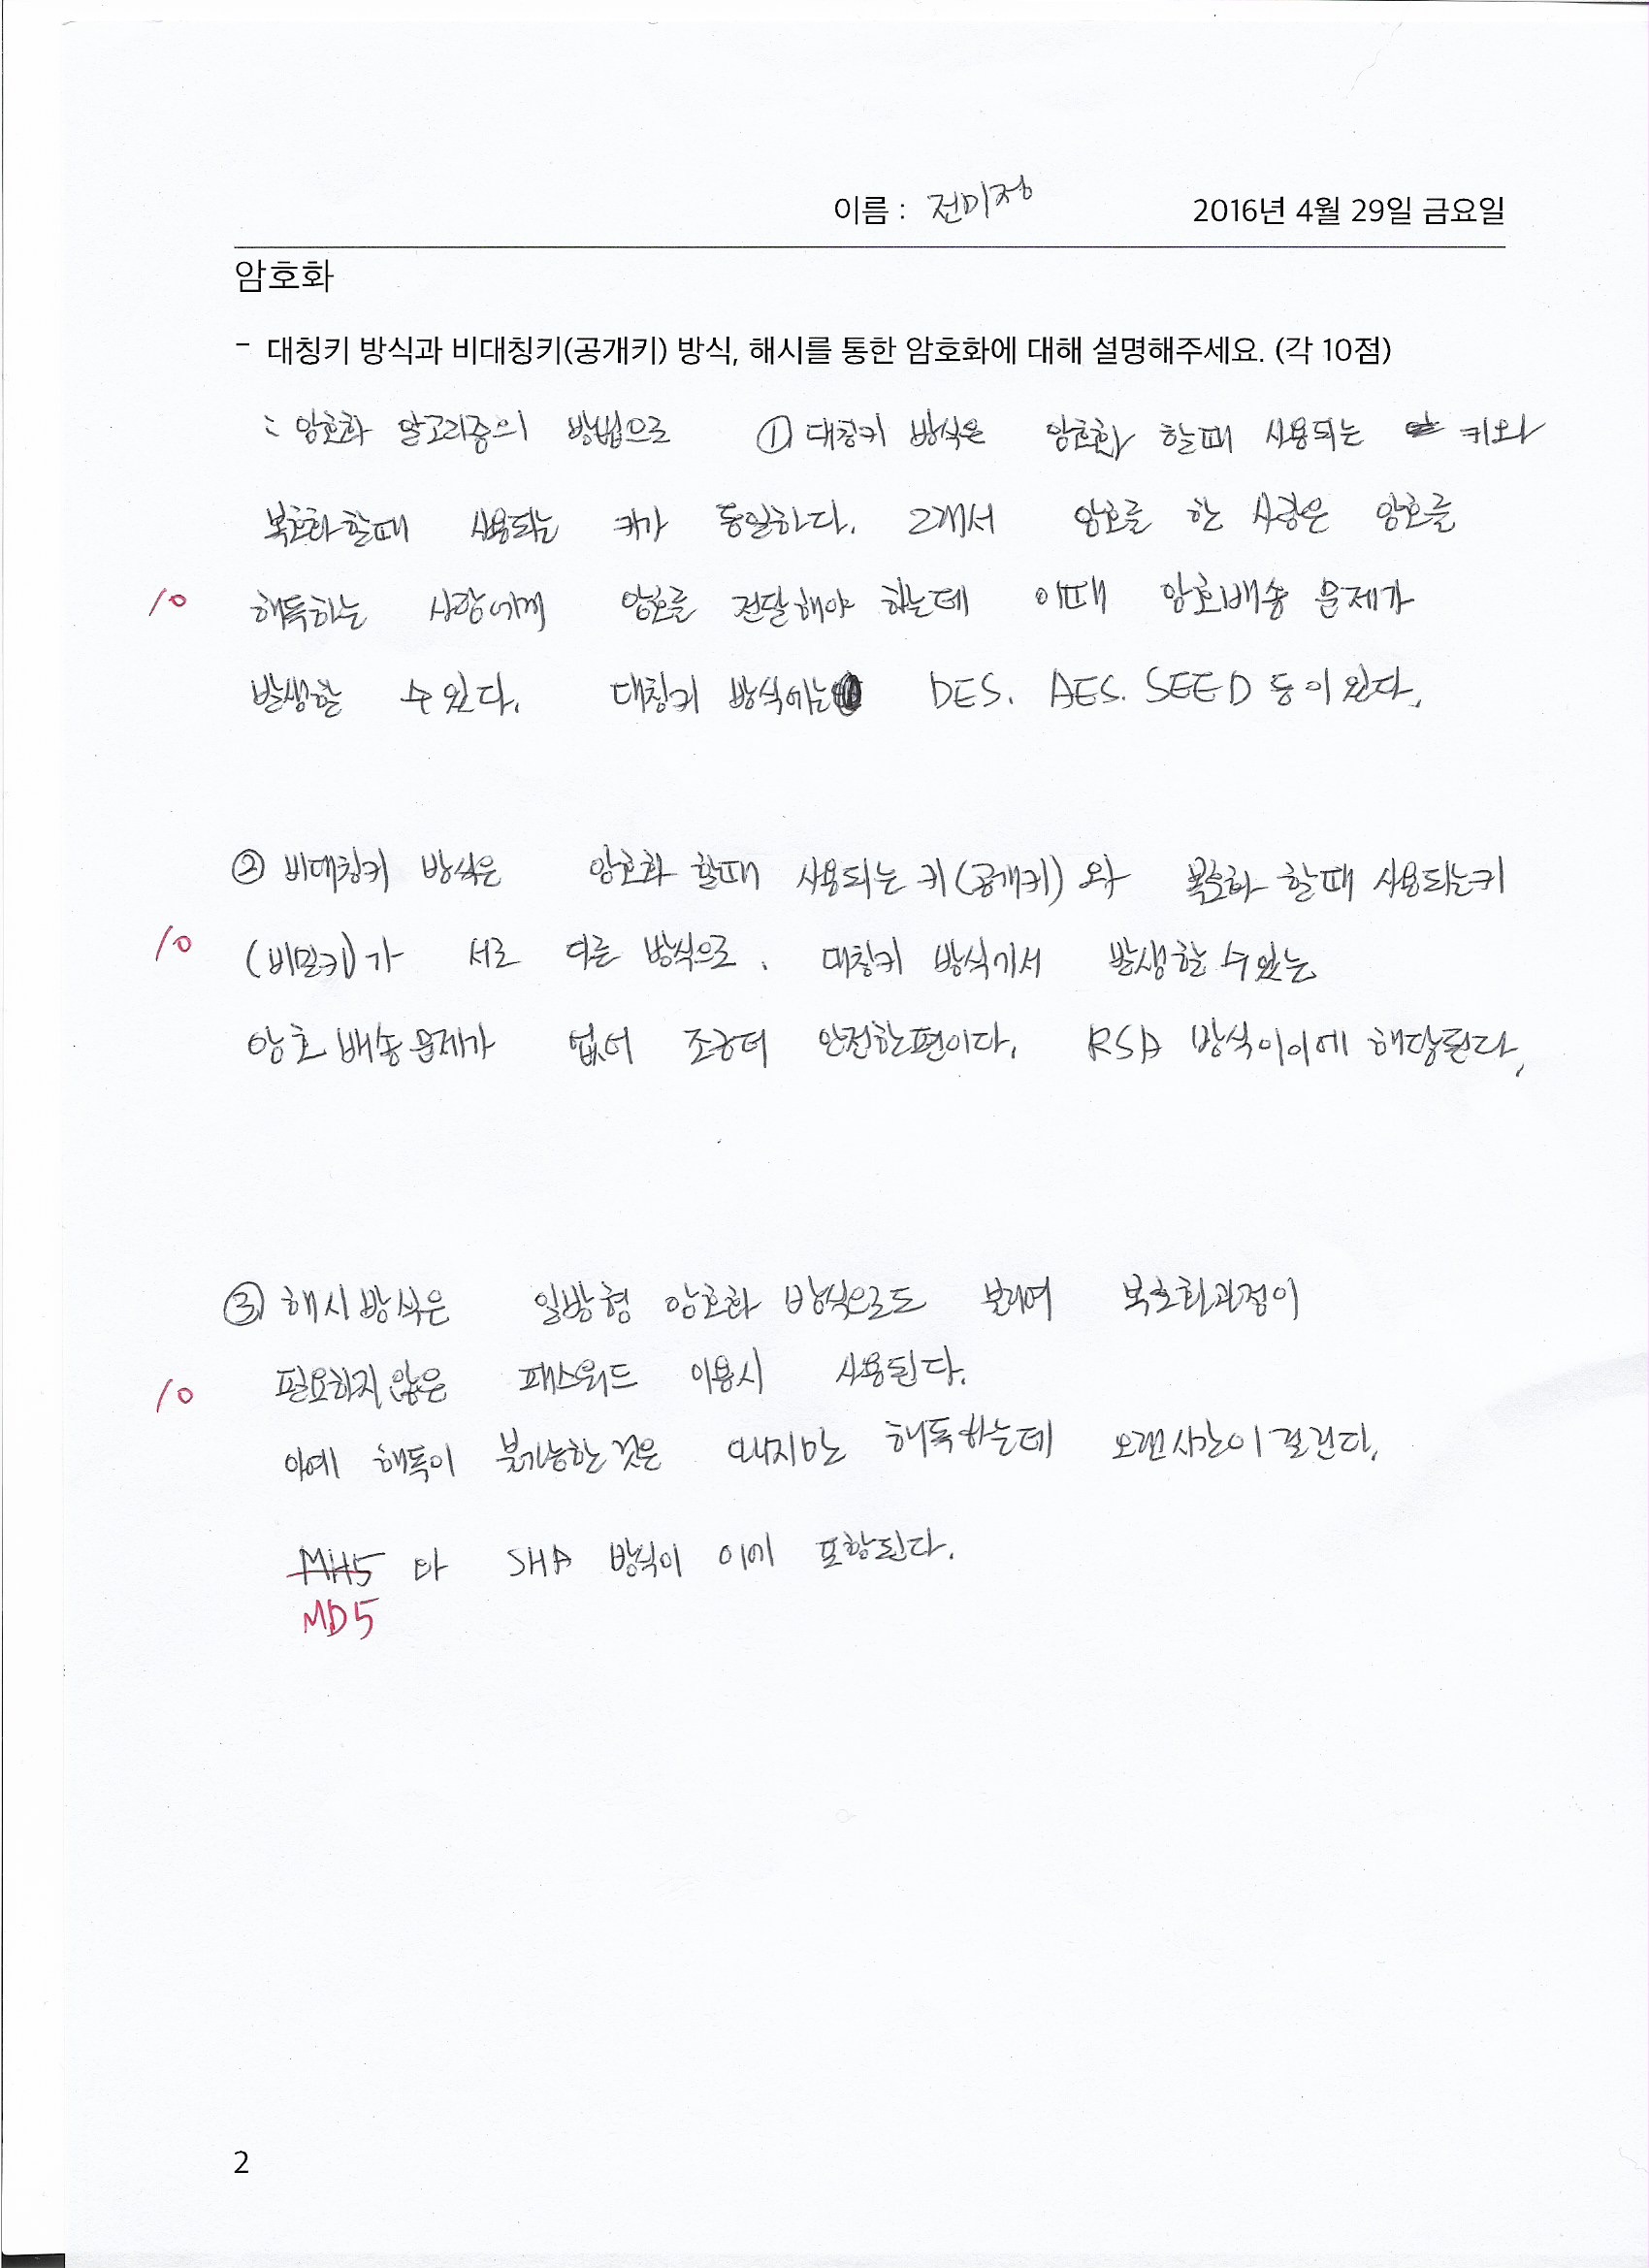 이름 : 전미정 2016년 4월 29일 금요일
암호화
- 대칭키 방식과 비대칭키(공개키) 방식, 해시를 통한 암호화에 대해 설명해주세요. (각 10점)
: 암호화 알고리즘의 방법으로 ① 대칭키 방식은 암호화 할때 사용되는 키와
복호화 할때 사용되는 키가 동일하다. 그래서 암호를 한 사람은 암호를
10 해독하는 사람에게 암호를 전달해야 하는데 이때 암호배송 문제가
발생할 수 있다. 대칭키 방식에는 DES. AES. SEED 등이 있다.
② 비대칭키 방식은 암호화 할때 사용되는 키(공개키)와 복호화 할때 사용되는키
10 (비밀키)가 서로 다른 방식으로. 대칭키 방식에서 발생할 수 있는
암호 배송 문제가 없어 조금더 안전한편이다. RSA 방식이 이에 해당된다.
③ 해시 방식은 일방형 암호화 방식으로도 불리며 복호화과정이
10 필요하지 않은 패스워드 이용시 사용된다.
아예 해독이 불가능한 것은 아니지만 해독하는데 오랜시간이 걸린다.
MH5 와 SHA 방식이 이에 포함된다.
MD5
2